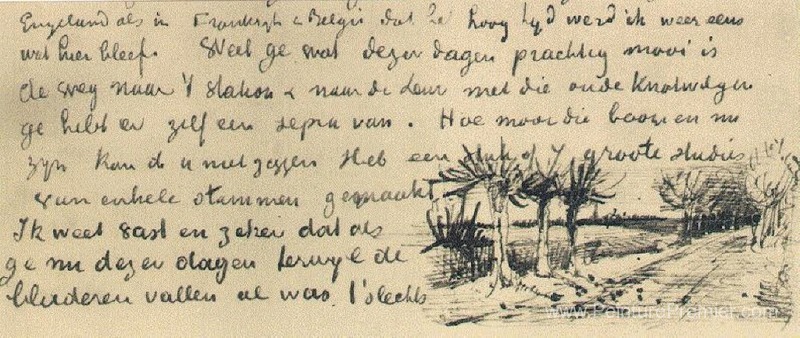 Engeland als in Frankrijk & Belgie dat het hoog tijd werd ik weer eens
wat hier bleef. Weet ge wat dezer dagen prachtig mooi is
de weg naar 't station & naar de Leur met die oude knotwilgen
ge hebt er zelf een sepia van. Hoe mooi die boomen nu
zijn kan ik u niet zeggen Heb een stuk of 7 groote studies
van enkele stammen gemaakt
Ik weet vast en zeker dat als
ge nu dezer dagen terwijl de
bladeren vallen al was 't slechts
www.PeinturePremier.com